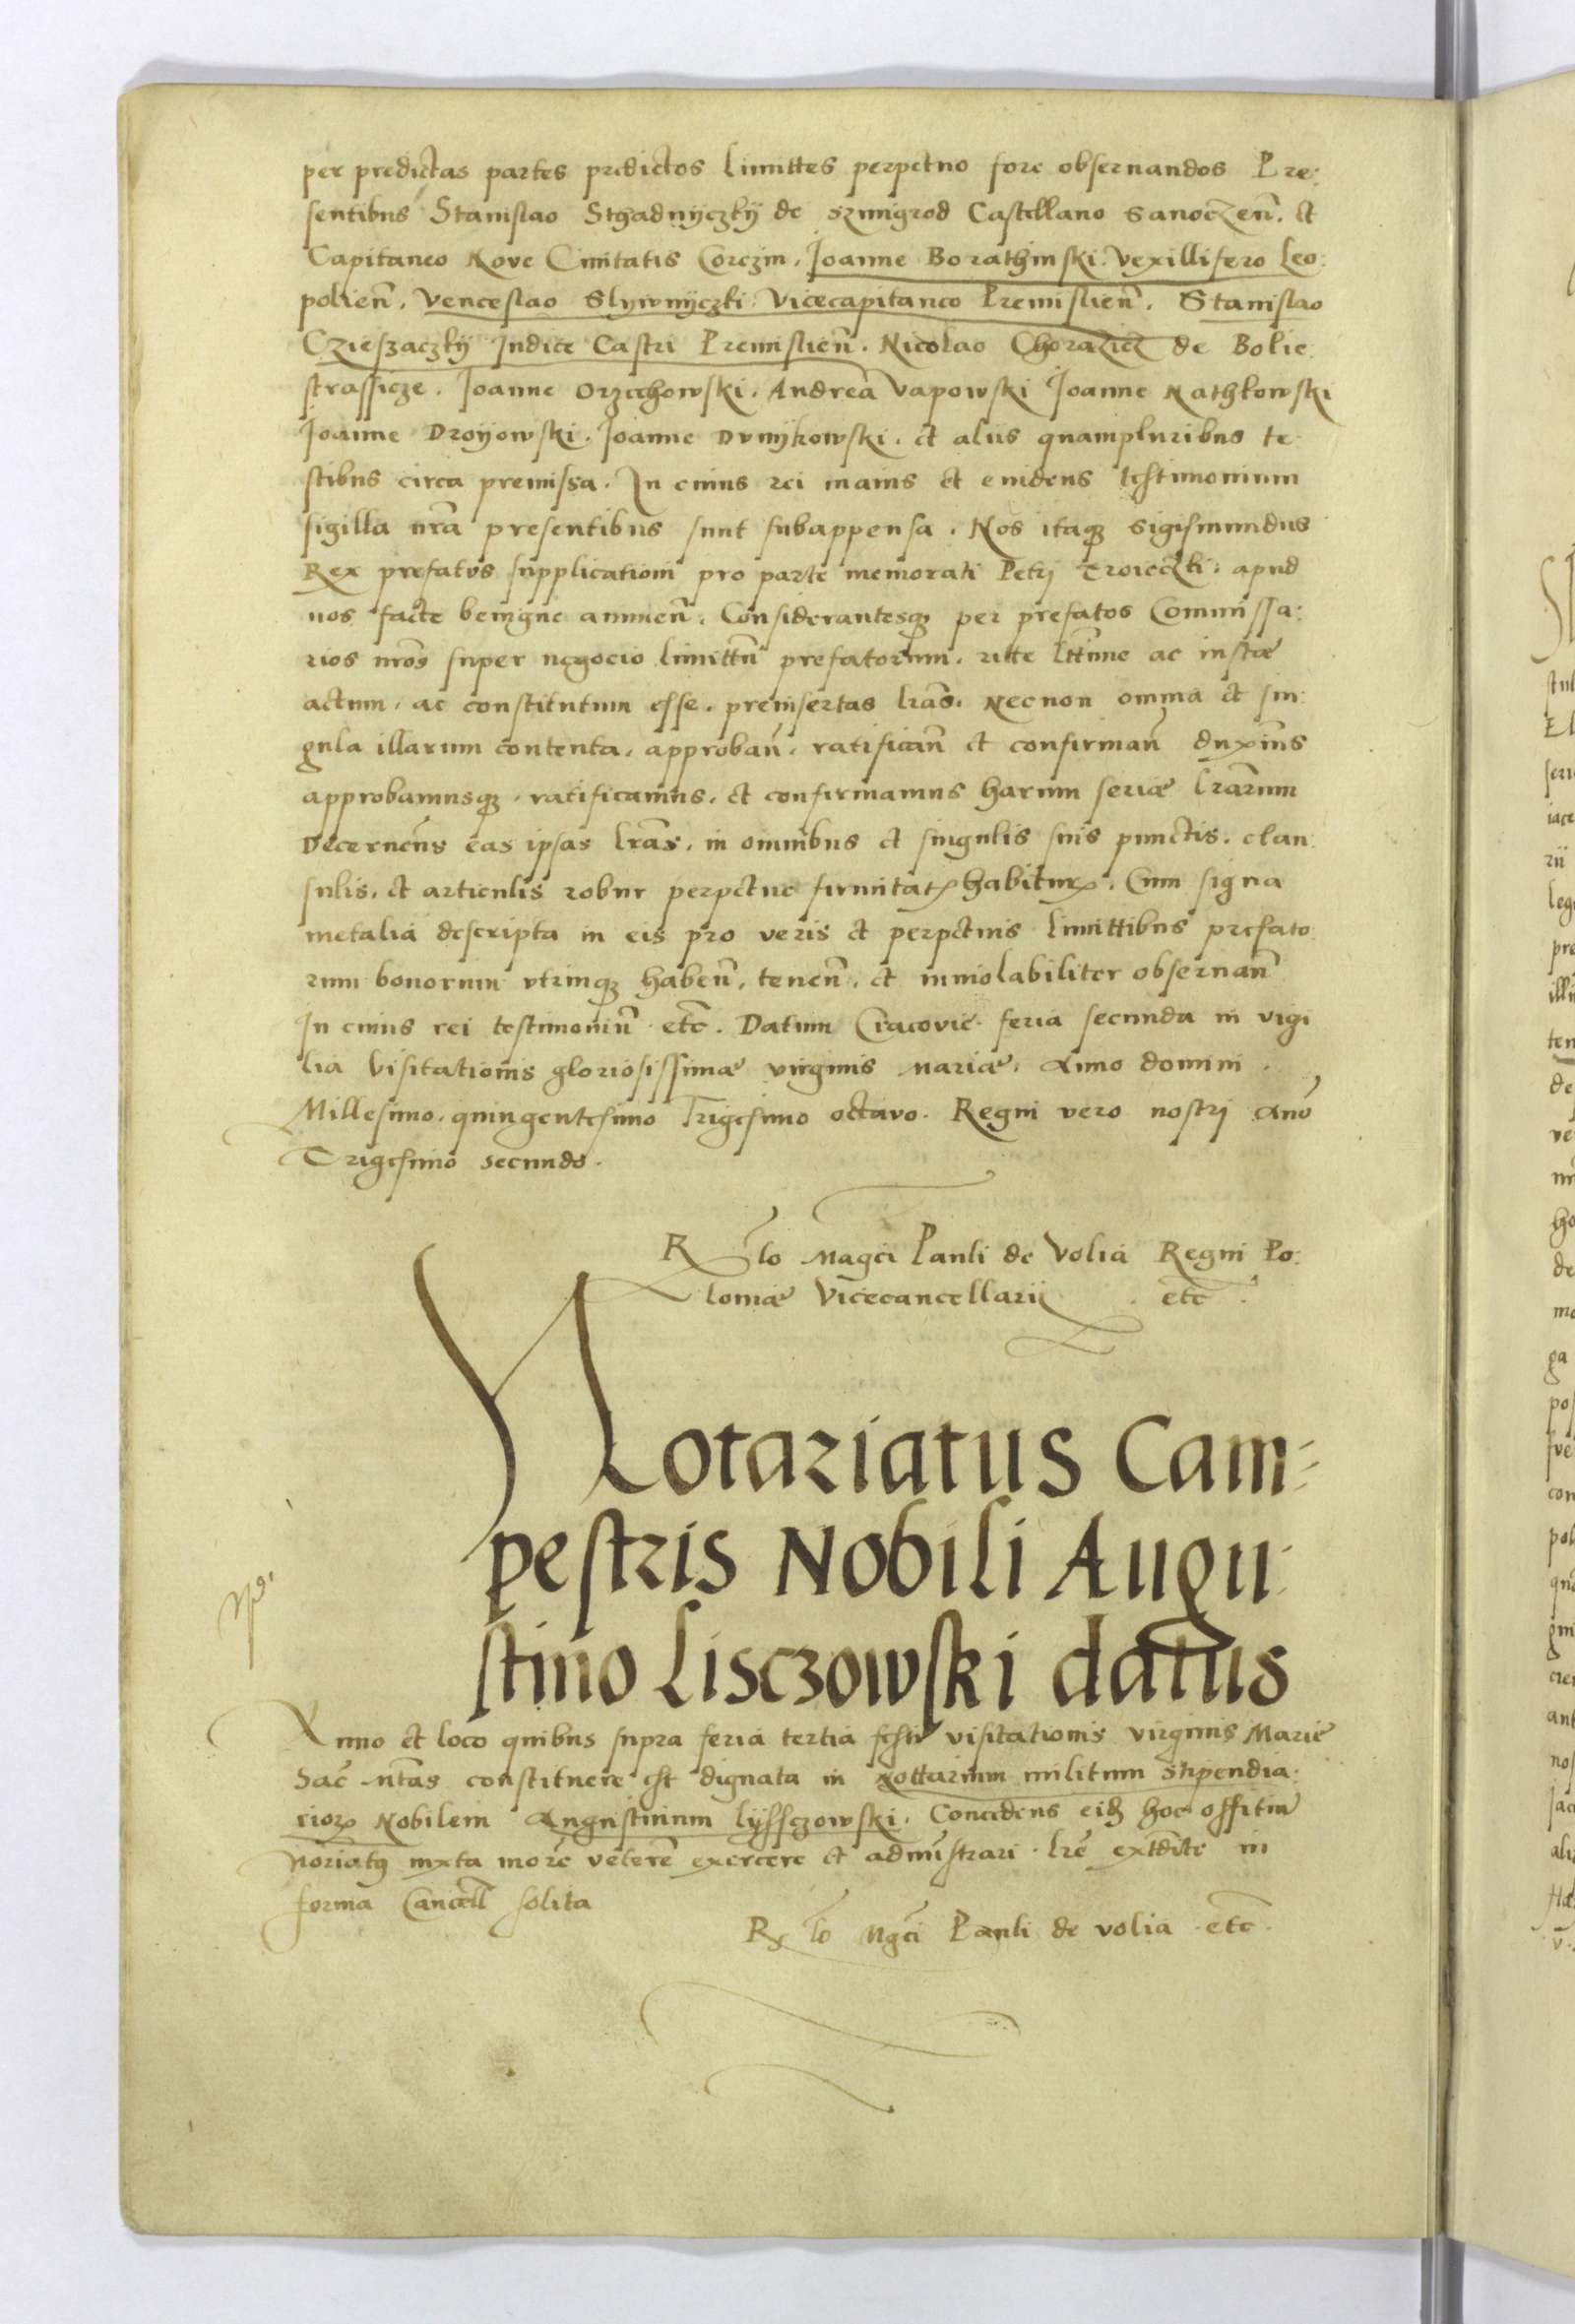 per predictas partes predictos limittes perpetuo fore obseruandos Pre:
sentibus Stanislao Sthadnyczky de szmigrod Castellano Sanoczeñ. et
Capitaneo Noue Ciuitatis Corczin. Joanne Borathinski Vexillifero Leo:
polieñ. Venceslao Slywnyczki Vicecapitaneo Premislieñ. Stanislao
Czieszaczky Judice Castri Premislieñ. Nicolao Chorazicz de Bolie
strassicze. Joanne Orzechowski. Andrea Vapowski Joanne Nathkowski
Joanne Droyowski. Joanne Dvnykowski. et aliis quampluribus te
stibus circa premissa. In cuius rei maius et euidens testimonium
sigilla nr̃a presentibus sunt subappensa. Nos itaqʒ Sigismundus
Rex prefatus supplicationi pro parte memorati Petrj Troieczki: apud
nos facte benigne annueñ. Considerantesqʒ per prefatos Commissa:
rios nr̃os super negocio limittũ prefatorum. ritte lttime ac iustæ
actum, ac constitutum esse. preinsertas lr̃as. Necnon omnia et sin:
gula illarum contenta. approbañ. ratificañ et confirmañ duxims
approbamusqʒ. ratificamus. et confirmamus harum seriæ lr̃arum
Decernens eas ipsas lr̃as. in omnibus et singulis suis punctis. clau:
sulis. et articulis robur perpetue firmitatꝭ habituꝝ. Cum signa
metalia descripta in eis pro veris et perpetuis limittibus prefato
rum bonorum vtrinqʒ habeñ. teneñ. et inuiolabiliter obseruañ
In cuius rei testimoniũ etc̃. Datum Cracovie. feria secunda in vigi
lia Visitationis gloriosissimæ virginis Mariæ. Anno domini.
Millesimo. quingentesimo Trigesimo octavo. Regni vero nostrj Anõ
Trigesimo secundo.
R lo Magci Pauli de Volia Regni Po:
loniæ Vicecancellarii. etc̃.
Notariatus Cam=
pestris Nobili Augu
stino Lisczowski datus
Anno et loco quibus supra feria tertia festi visitationis virginis Marie
Sac̃ Mtas constituere est dignata in Nottarium militum Stipendia:
rioꝝ Nobilem Augustinum lyssczowski. Concedens eidʒ hoc offitiũ
Noriatꝯ iuxta morẽ veterẽ exercere et admĩstrari. lrẽ extdite in
forma Cancell solita
Rx lo Mgci Pauli de volia etc̃.